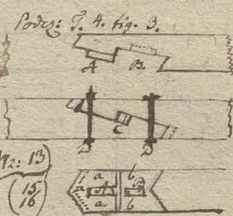 Podcz: T. 4. fig. 3.
A B.
C
D D
N2: 13)
(15
16)
a b
A B
a b